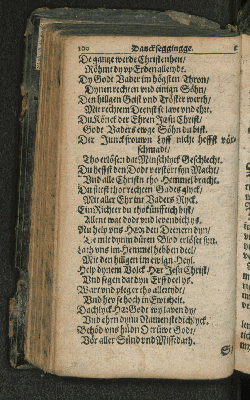 100 Danckseggingge.
De gantze werde Christenheit/
Röhmt dy vp Erden alletydt.
Dy Godt Vader im högsten Thron/
Dynen rechten vnd einigen Söhn/
Den hilligen Geist vnd Tröster werth/
Mit rechtem Deenst se lavet vnd ehrt.
Du Köninck der Ehren Jesu Christ/
Godt Vaders ewige Söhn du bist.
Der Junckfrouwen Lyff nicht heffst vör-
schmadt/
Tho erlösen dat Minschlyck Geschlecht.
Du heffst dem Dode verstört syn Macht/
Vnd alle Christen tho Hemmel bracht.
Du sittest thor rechten Gades glyck/
Mit aller Ehr ins Vaders Ryck.
Ein Richter du thokünfftich bist/
Allent wat dodt vnd levendich ys.
Nu help vns Here den Deenern dyn/
De mit dynem düren Blod erlöset syn.
Lath vns im Hemmel hebben deel/
Mit den hilligen im ewigen Heyl.
Help dynem Volck Her Jesu Christ/
Vnd segen dat dyn Erffdeel ys.
Wart vnd pleger tho aller tydt/
Vnd hev se hoch in Ewicheit.
Dachlyck Her Godt wy laven dy/
Vnd ehrn dynn Namen stedichlyck.
Behöd vns hüden O trüwe Godt/
Vör aller Sünd vnd Missedath.